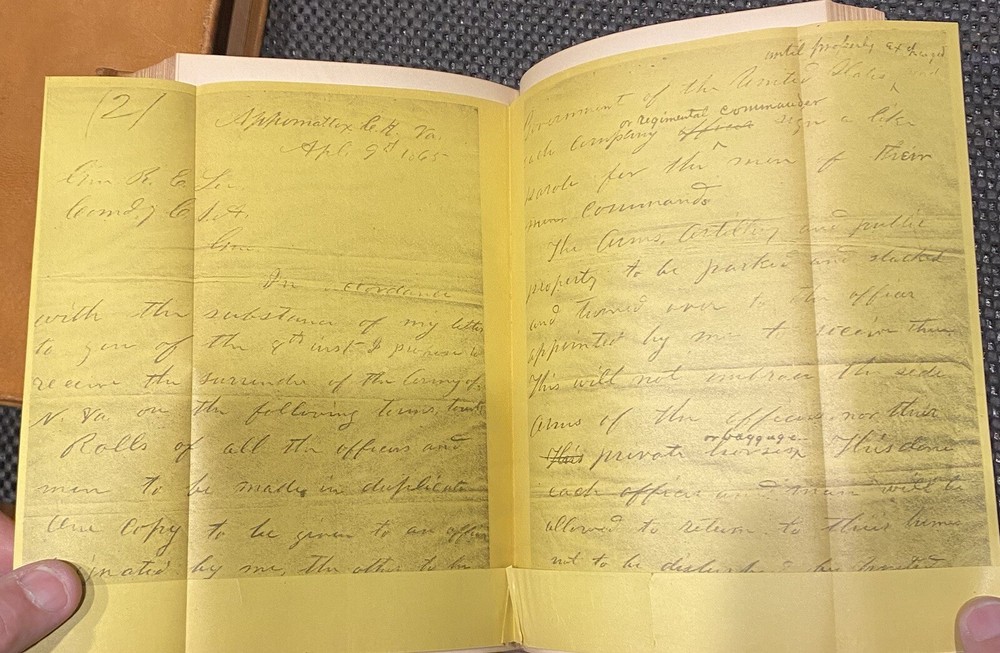 (2)
Appomattox C. H. Va.
Apl. 9th 1865
Gen. R. E. Lee,
Comd.g C. S. A.
Gen.
In accordance
with the substance of my letter
to you of the 8th inst. I propose to
receive the surrender of the Army of
N. Va. on the following terms, towit:
Rolls of all the officers and
men to be made in duplicate
One copy to be given to an officer
by me, the other to be
until properly exchanged
Government of the United States and
or regimental commander
each company officer sign a like
parole for the men of their
commands
The Arms, Artillery and public
property to be parked and stacked
and turned over to the officer
appointed by me to receive them
This will not embrace the side
Arms of the officers, nor their
or baggage.
This private horses This done
each officer and man will be
allowed to return to their homes
not to be disturbed by United